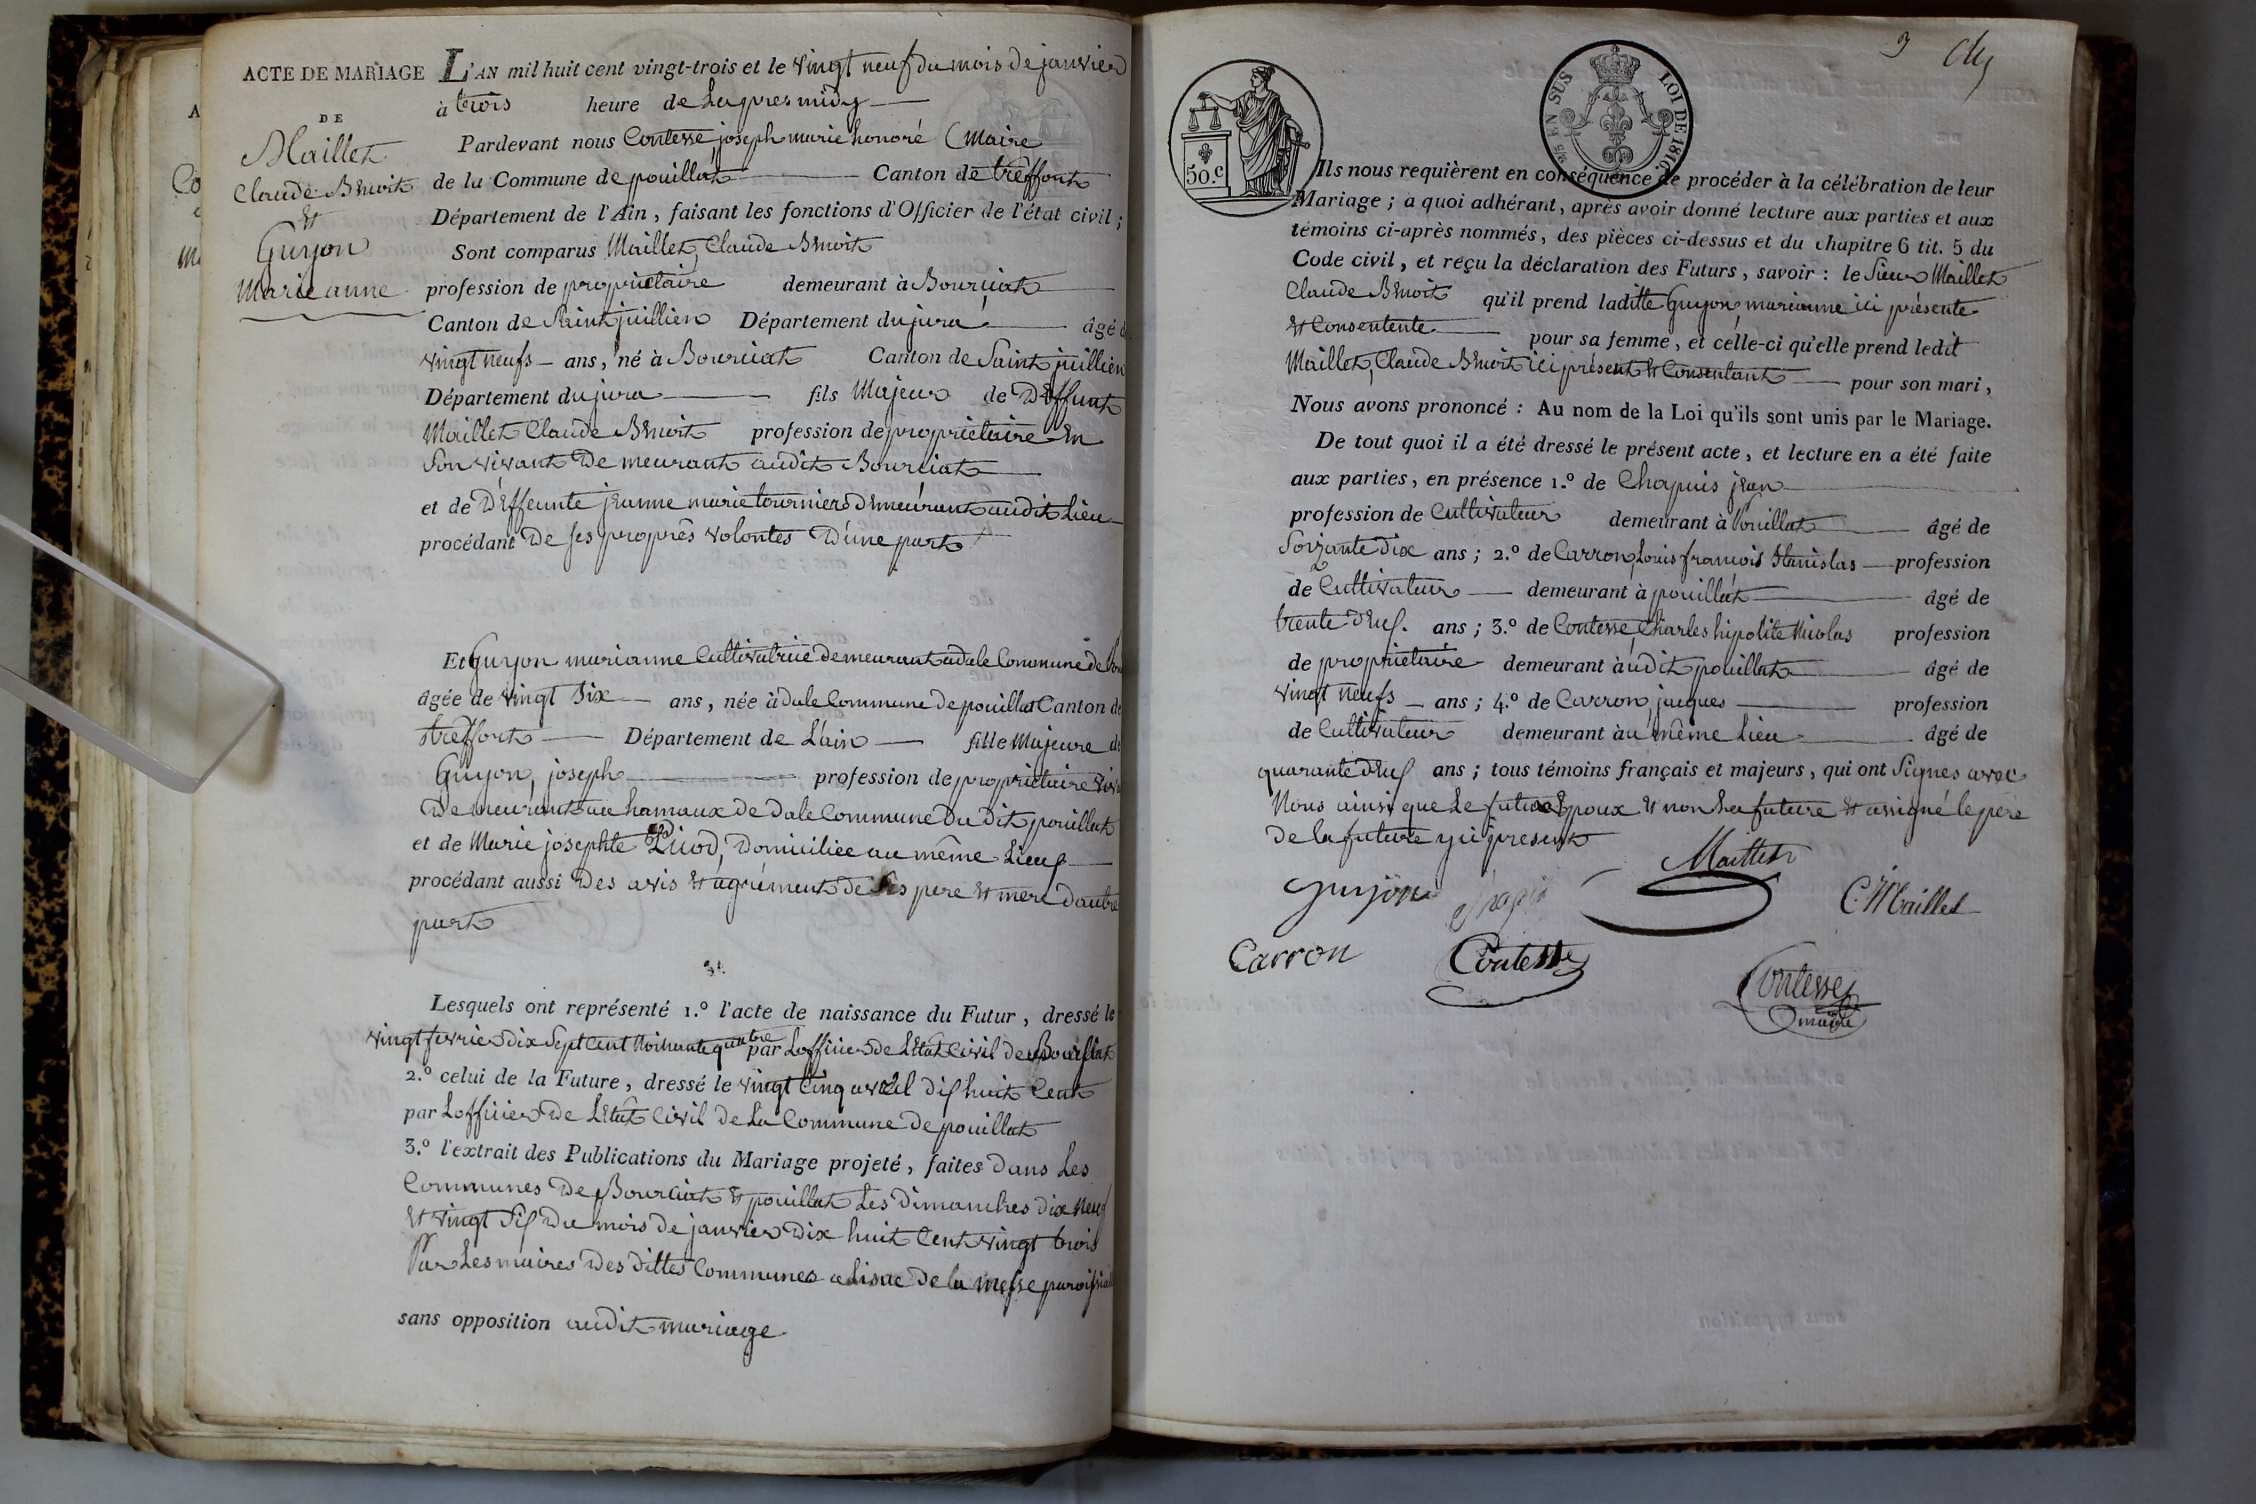 ACTE DE MARIAGE
DE
Maillet
Claude Benoit
Et
Guyon
Marie anne
L'AN mil huit cent vingt-trois et le vingt neuf du mois de janvier
à trois heure de Lapres midy
Pardevant nous Contesse joseph marie honoré Maire
de la Commune de pouillat Canton de treffort
Département de l'Ain, faisant les fonctions d'Officier de l'état civil;
Sont comparus Maillet, Claude Benoit
profession de propriétaire demeurant à Bourciat
Canton de Saint juillien Département du jura âgé
vingt neufs ans, né à Bourciat Canton de Saint juillien
Département du jura fils Majeur de Deffunt
Maillet Claude Benoit profession de propriétaire En
Son vivant Demeurant audit Bourciat
et de Deffeunte jeanne marie tournier Demeurant audit Lieu
procédant De ses propres volontés D'une part
Et Guyon marianne Cultivatrice demeurant a dale Commune de
âgée de vingt Six ans, née à dale Commune de pouillat Canton de
treffort Département de L'ain fille Majeure de
Guyon, joseph profession de propriétaire
Demeurant au hamaux de Dale Commune Du Dit pouillat
et de Marie josephte Picod, Domiciliée au même Lieu
procédant aussi Des avis Et agrément de Ses pere Et mere D'autre
part
Lesquels ont représenté 1.º l'acte de naissance du Futur, dressé le
vingt fevrier dix Sept Cent Noinante quatre par Lofficier de L'Etat Civil de Bourciat
2.º celui de la Future, dressé le vingt Cinq avril dix huit Cent
par Lofficier De L'Etat Civil de La Commune De pouillat
3.º l'extrait des Publications du Mariage projeté, faites Dans Les
Communes De Bourciat Et pouillat Les Dimanches dix Neuf
Et vingt Six Du mois De janvier Dix huit Cent vingt trois
Par Les maires Des dittes Communes a Lisue De la Messe
sans opposition audit mariage
3
50.c
EN SUS
LOI DE 1816.
Ils nous requièrent en conséquence de procéder à la célébration de leur
Mariage; à quoi adhérant, après avoir donné lecture aux parties et aux
témoins ci-après nommés, des pièces ci-dessus et du chapitre 6 tit. 5 du
Code civil, et reçu la déclaration des Futurs, savoir: le Sieur Maillet
Claude Benoit qu'il prend laditte Guyon, marianne ici présente
Et Consentente pour sa femme, et celle-ci qu'elle prend ledit
Maillet, Claude Benoit ici présent Et Consentant pour son mari,
Nous avons prononcé: Au nom de la Loi qu'ils sont unis par le Mariage.
De tout quoi il a été dressé le présent acte, et lecture en a été faite
aux parties, en présence 1.º de Chapuis jean
profession de Cultivateur demeurant à Pouillat âgé de
Soixante Dix ans; 2.º de Carron, Louis françois Stanislas profession
de Cultivateur demeurant à pouillat âgé de
trente Neuf. ans; 3.º de Contesse, Charles hipolite Nicolas profession
de propriétaire demeurant àudit pouillat âgé de
vingt neufs ans; 4.º de Carron, jacques profession
de Cultivateur demeurant àu même Lieu âgé de
quarante Neuf ans; tous témoins français et majeurs, qui ont Signes avec
Nous ainsi que Le futur Epoux Et non La future Et a signé le pere
de la future y ici present
Guyon
Maillet
C. Maillet
Carron
Contesse
Contesse
maire